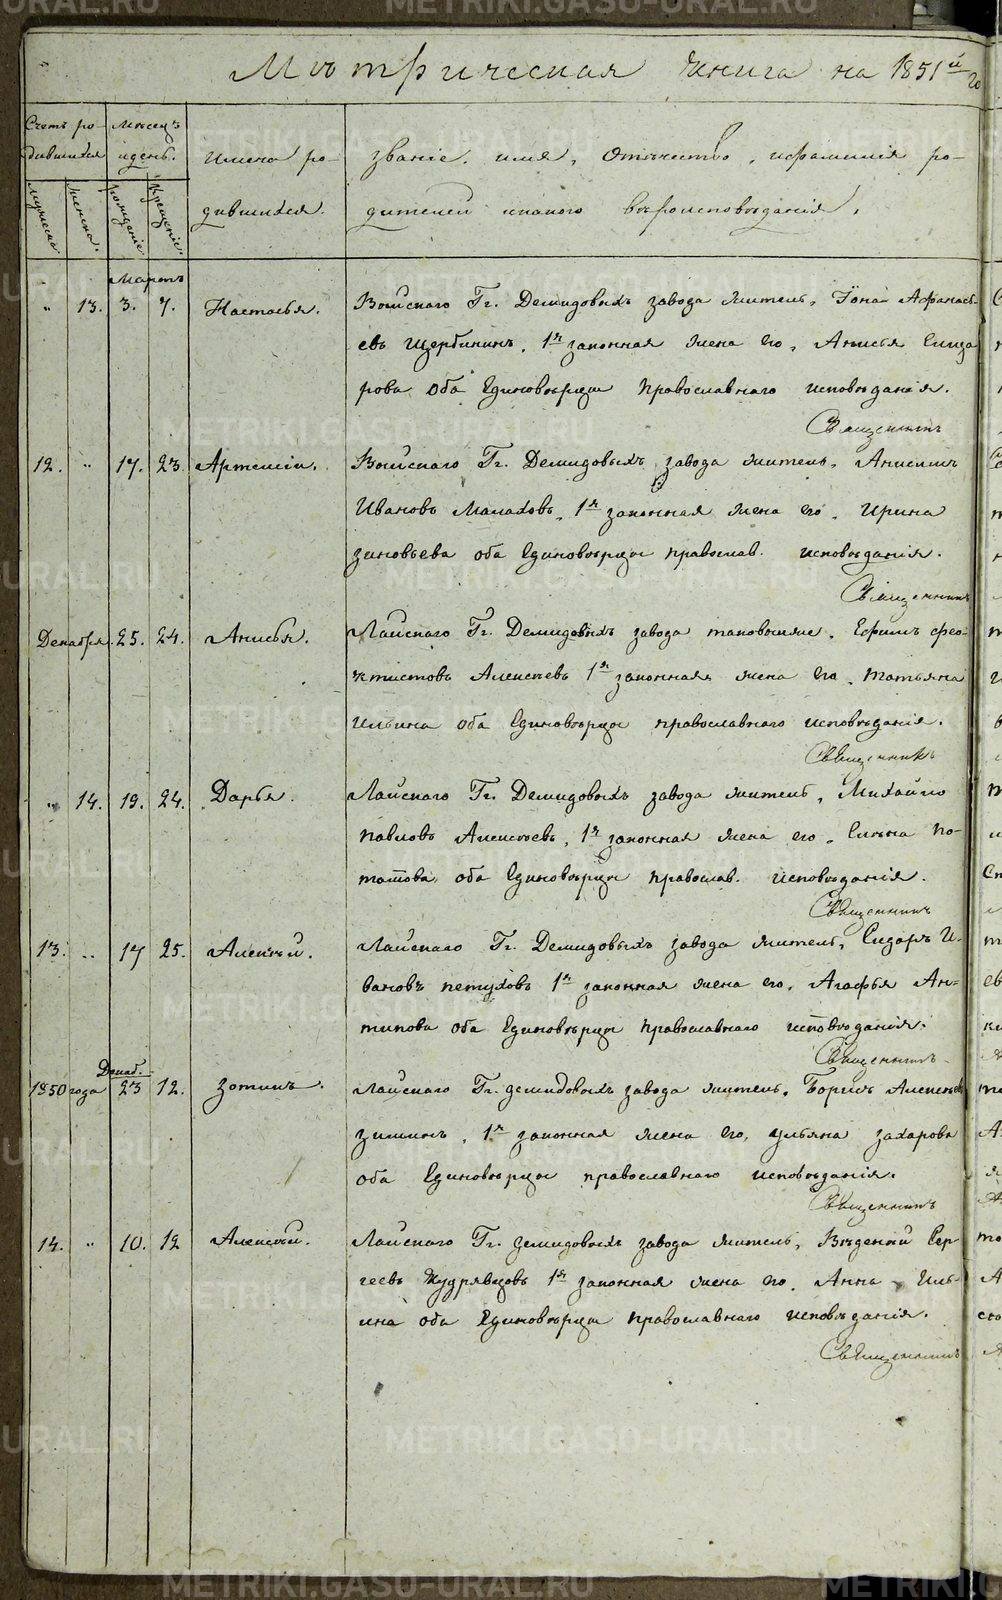 Метрическая книга на 1851й го
Счетъ ро- Месецъ
дившихся и день. Имена ро- Званіе, имя, отчество, и фамилія ро-
дившихся. дителей и какого вѣроисповѣданія.
мужеска женска. рожденіе крещеніе.
Мартъ
" 13. 3. 7. Настасья. Воискаго Гг. Демидовыхъ завода житель, Іона Афанась-
евъ Щербининъ, 1я законная жена его, Анисья Елиза
рова оба Единовѣрцы Православнаго исповѣданія.
Священникъ
12. " 17. 23. Артемій. Воискаго Гг. Демидовыхъ завода житель, Анисимъ
Ивановъ Малаховъ, 1я законная жена его, Ирина
Зиновьева оба Единовѣрцы православ. исповѣданія.
Священникъ
Декабря 25. 24. Анисья. Лайскаго Гг. Демидовыхъ завода таковыеже, Ефимъ Фео-
ктистовъ Алексѣевъ 1я законная жена его, Татьяна
Ильина оба Единовѣрцы православнаго исповѣданія.
Священникъ
" 14. 19. 24. Дарья. Лайскаго Гг. Демидовыхъ завода житель, Михайло
Павловъ Алексѣевъ, 1я законная жена его, Елена По-
тапова, оба Единовѣрцы православ. исповѣданія.
Священникъ
13. " 17 25. Алексѣй. Лайскаго Гг. Демидовыхъ завода житель, Сидоръ И-
вановъ Петуховъ 1я законная жена его, Агафья Ан-
типова оба Единовѣрцы православнаго исповѣданія.
Священникъ
Декаб.
1850 года 23 12. Зотикъ. Лайскаго Гг. Демидовыхъ завода житель, Борисъ Алексѣевъ
Зиминъ, 1я законная жена его, Ульяна Захарова
оба Единовѣрцы православнаго исповѣданія.
Священникъ
14. " 10. 12 Алексѣй. Лайскаго Гг. Демидовыхъ завода житель, Веденей Сер-
геевъ Кудрявцовъ 1я законная жена его, Анна Иль-
ина оба Единовѣрцы православнаго исповѣданія.
Священникъ
METRIKI.GASO-URAL.RU